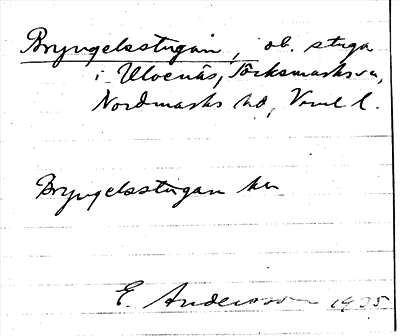 Bryngelsstugan, ob. stuga
i Ulvenäs, Torksmarks sn,
Nordmarks hd, Verml l.
Bryngelsstugan
E. Andersson 1925